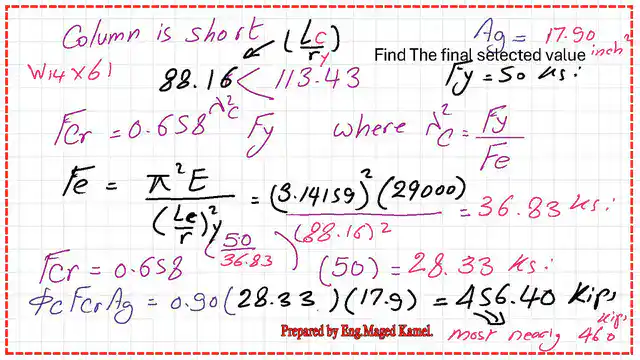 Column is short (Lc/r)y Ag = 17.90 inch²
Find The final selected value
W14×61 88.16 < 113.43 Fy = 50 ksi
Fcr = 0.658^λ²c Fy where λ²c = Fy/Fe
Fe = π²E/(Le/r)²y = (3.14159)²(29000)/(88.16)² = 36.83 ksi
Fcr = 0.658^(50/36.83) (50) = 28.33 ksi
ϕcFcrAg = 0.90(28.33)(17.9) = 456.40 Kips
most nearly 460 kips
Prepared by Eng.Maged Kamel.